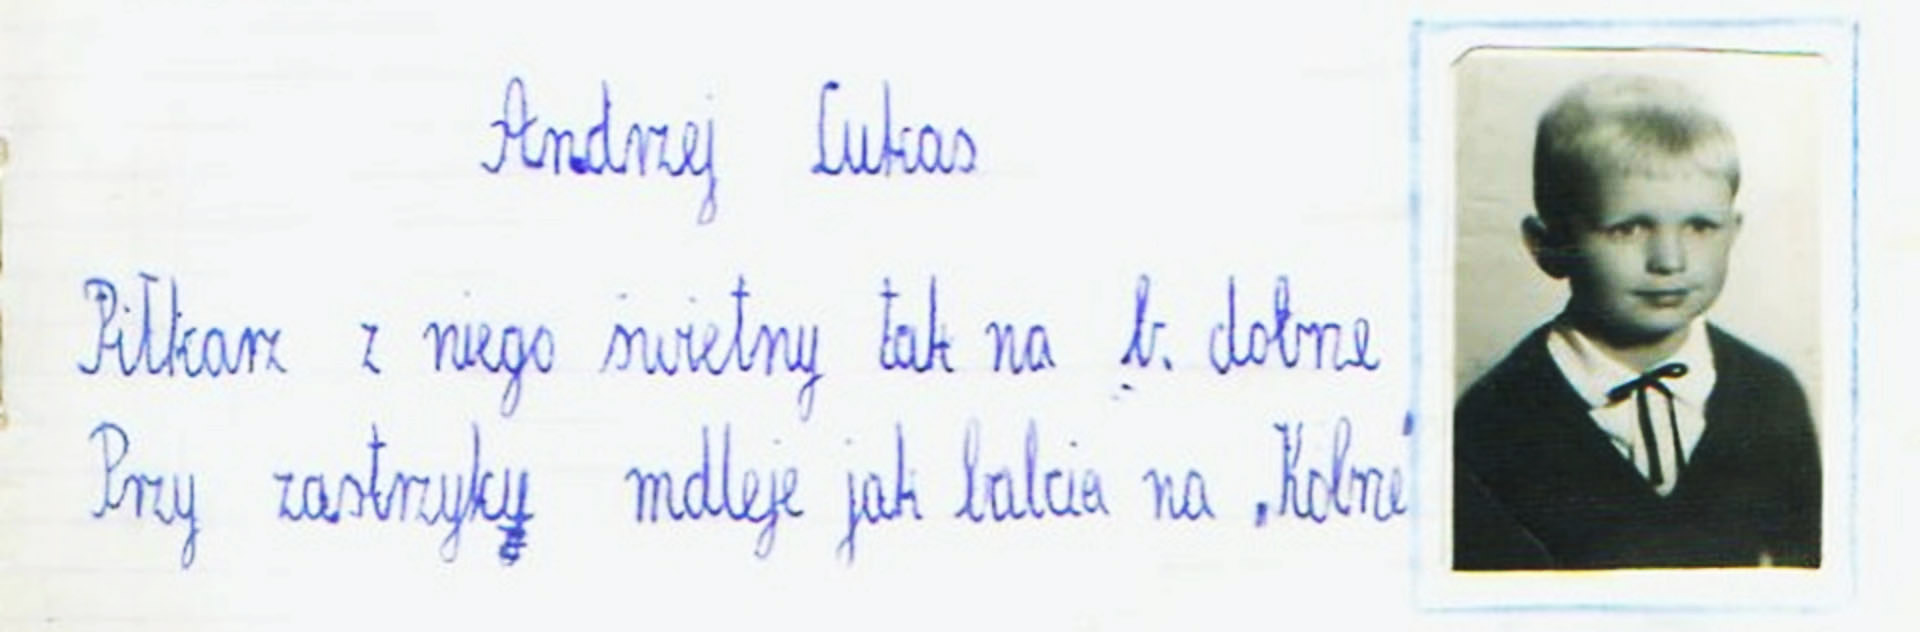 Andrzej Lukas
Piłkarz z niego świetny tak na b. dobrze
Przy zastrzyku mdleje jak balcia na „Kobrze”